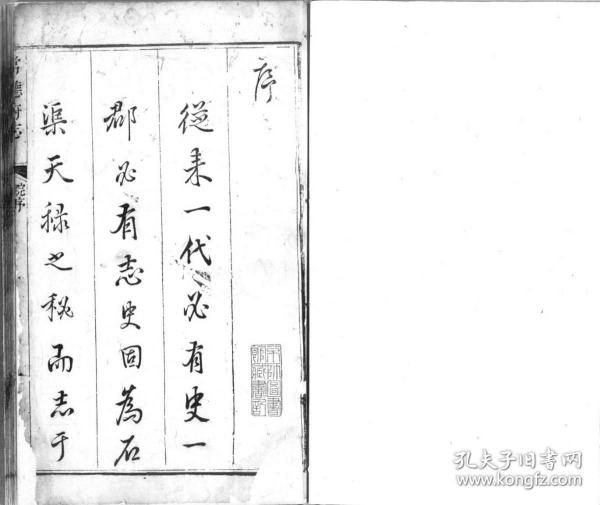 序
從来一代必有史一
郡必有志史固為石
渠天禄之秘而志于
常德府志
序
孔夫子旧书网
www.kongfz.com